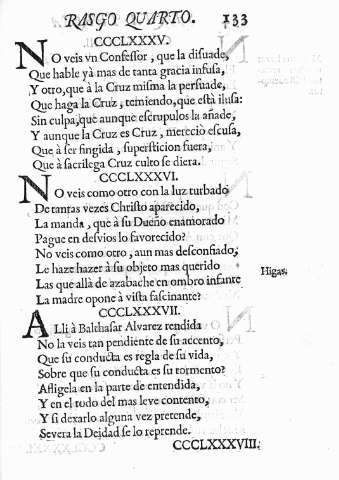 RASGO QUARTO. 133
CCCLXXXV.
NO veis vn Confessor, que la disuade,
Que hable yà mas de tanta gracia infusa,
Y otro, que à la Cruz misma la persuade,
Que haga la Cruz, temiendo, que està ilusa:
Sin culpa, que aunque escrupulos la añade,
Y aunque la Cruz es Cruz, mereciò escusa,
Que à ser fingida, supersticion fuera,
Que à sacrilega Cruz culto se diera.
CCCLXXXVI.
NO veis como otro con la luz turbado
De tantas vezes Christo aparecido,
La manda, que à su Dueño enamorado
Pague en desvios lo favorecido?
No veis como otro, aun mas desconfiado,
Le haze hazer à su objeto mas querido
Higas.
Las que allà de azabache en ombro infante
La madre opone à vista fascinante?
CCCLXXXVII.
ALli à Balthasar Alvarez rendida
No la veis tan pendiente de su accento,
Que su conducta es regla de su vida,
Sobre que su conducta es su tormento?
Afligela en la parte de entendida,
Y en el todo del mas leve contento,
Y si dexarlo alguna vez pretende,
Severa la Deidad se lo reprende.
CCCLXXXVIII.